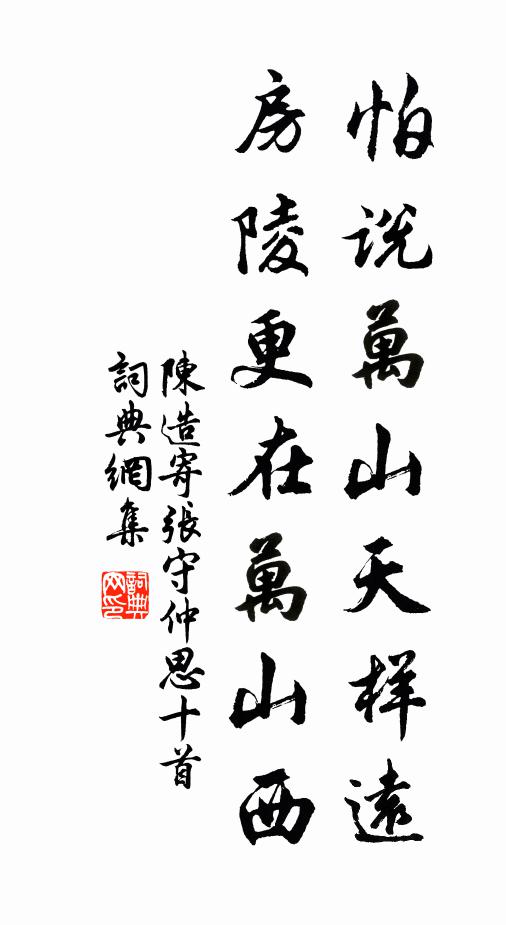 怕说萬山天样遠
房陵更在萬山西
陳造寄張守仲思十首
詞典網集
詞典网印